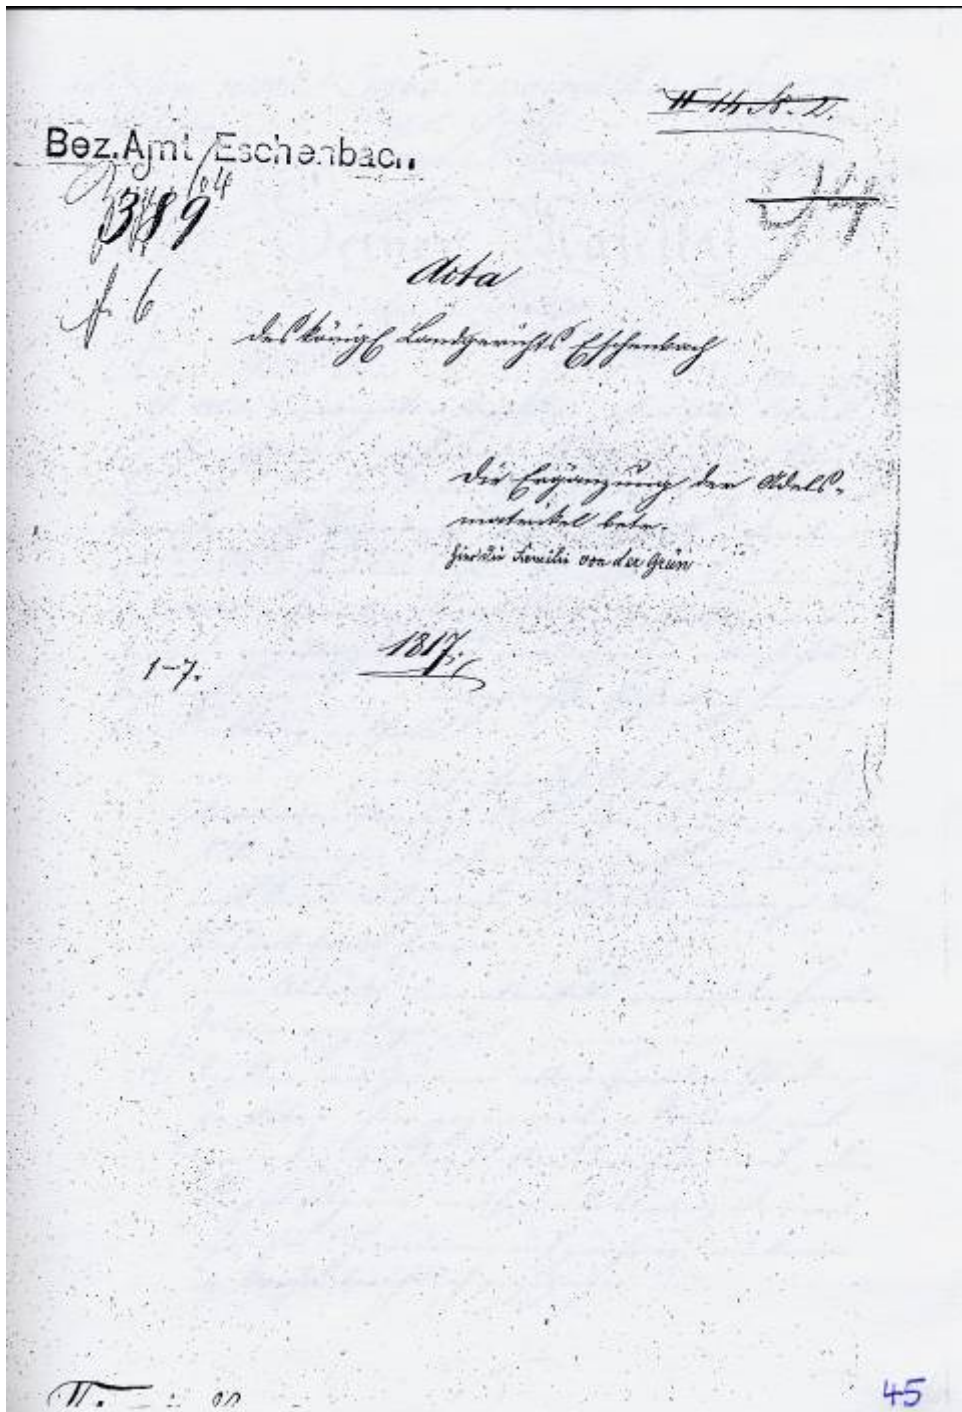 Bez. Amt Eschenbach.
94
Acta
des königl Landgerichts Eschenbach
die Ergänzung der Adels-
matrikel betr.
hier die Familie von der Grün
1-7.
1817.
45